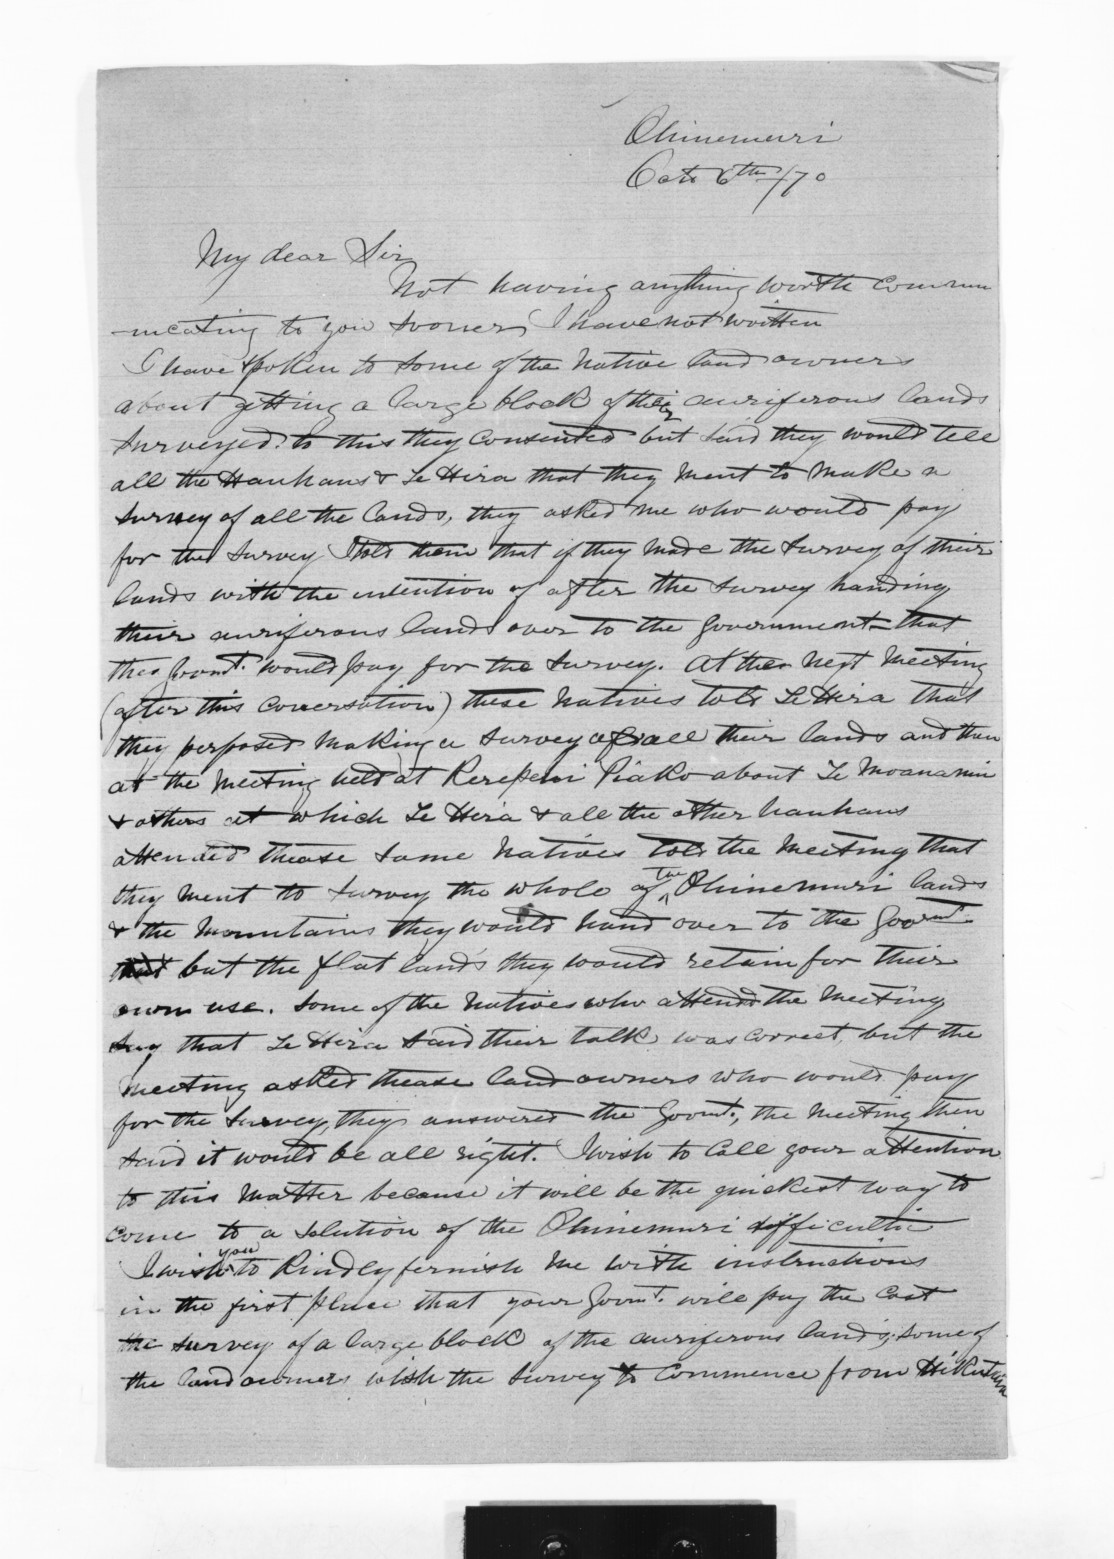 Ohinemuri
Oct 6th/70
My dear Sir
Not having anything worth commu
-nicating to you sooner, I have not written
I have spoken to some of the Native land owners
about getting a large block of their auriferous lands
surveyed. to this they consented but said they would tell
all the Hauhaus & Te Hira that they ment to make a
survey of all the lands, they asked me who would pay
for the survey I told them that if they made the survey of their
lands with the intention of after the survey handing
their auriferous lands over to the Government that
the Govmt. would pay for the survey. At the next meeting
(after this conversation) these natives told Te Hira that
they perposed making a survey of all their lands and then
at the meeting held at Kerepehi Piako about Te Moananui
& others at which Te Hira & all the other hauhaus
attended thease same natives told the meeting that
they ment to survey the whole of the Ohinemuri lands
& the mountains they would hand over to the Govmt.
but the flat lands they would retain for their
own use. some of the natives who attended the meeting
say that Te Hira said their talk was correct, but the
meeting asked thease land owners who would pay
for the survey, they answered the Govmt., the meeting then
said it would be all right. I wish to call your attention
to this matter because it will be the quickest way to
come to a solution of the Ohinemuri difficultie
I wish you to kindly fernish me with instructions
in the first place that your Govmt. will pay the cost
the survey of a large block of the auriferous lands, some of
the land owners wish the survey to commence from Hikutaia